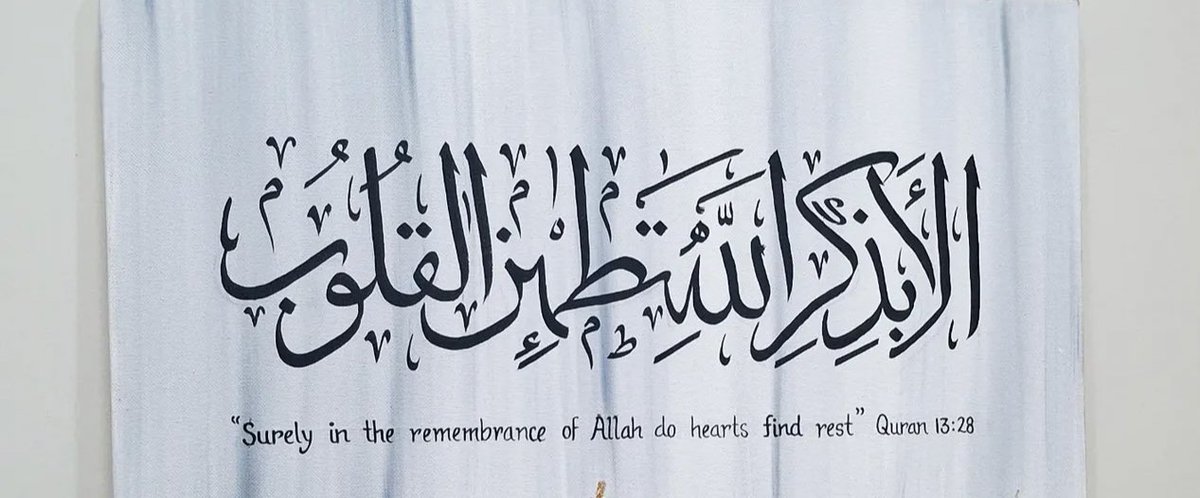 ألا بذكر الله تطمئن القلوب
“Surely in the remembrance of Allah do hearts find rest” Quran 13:28